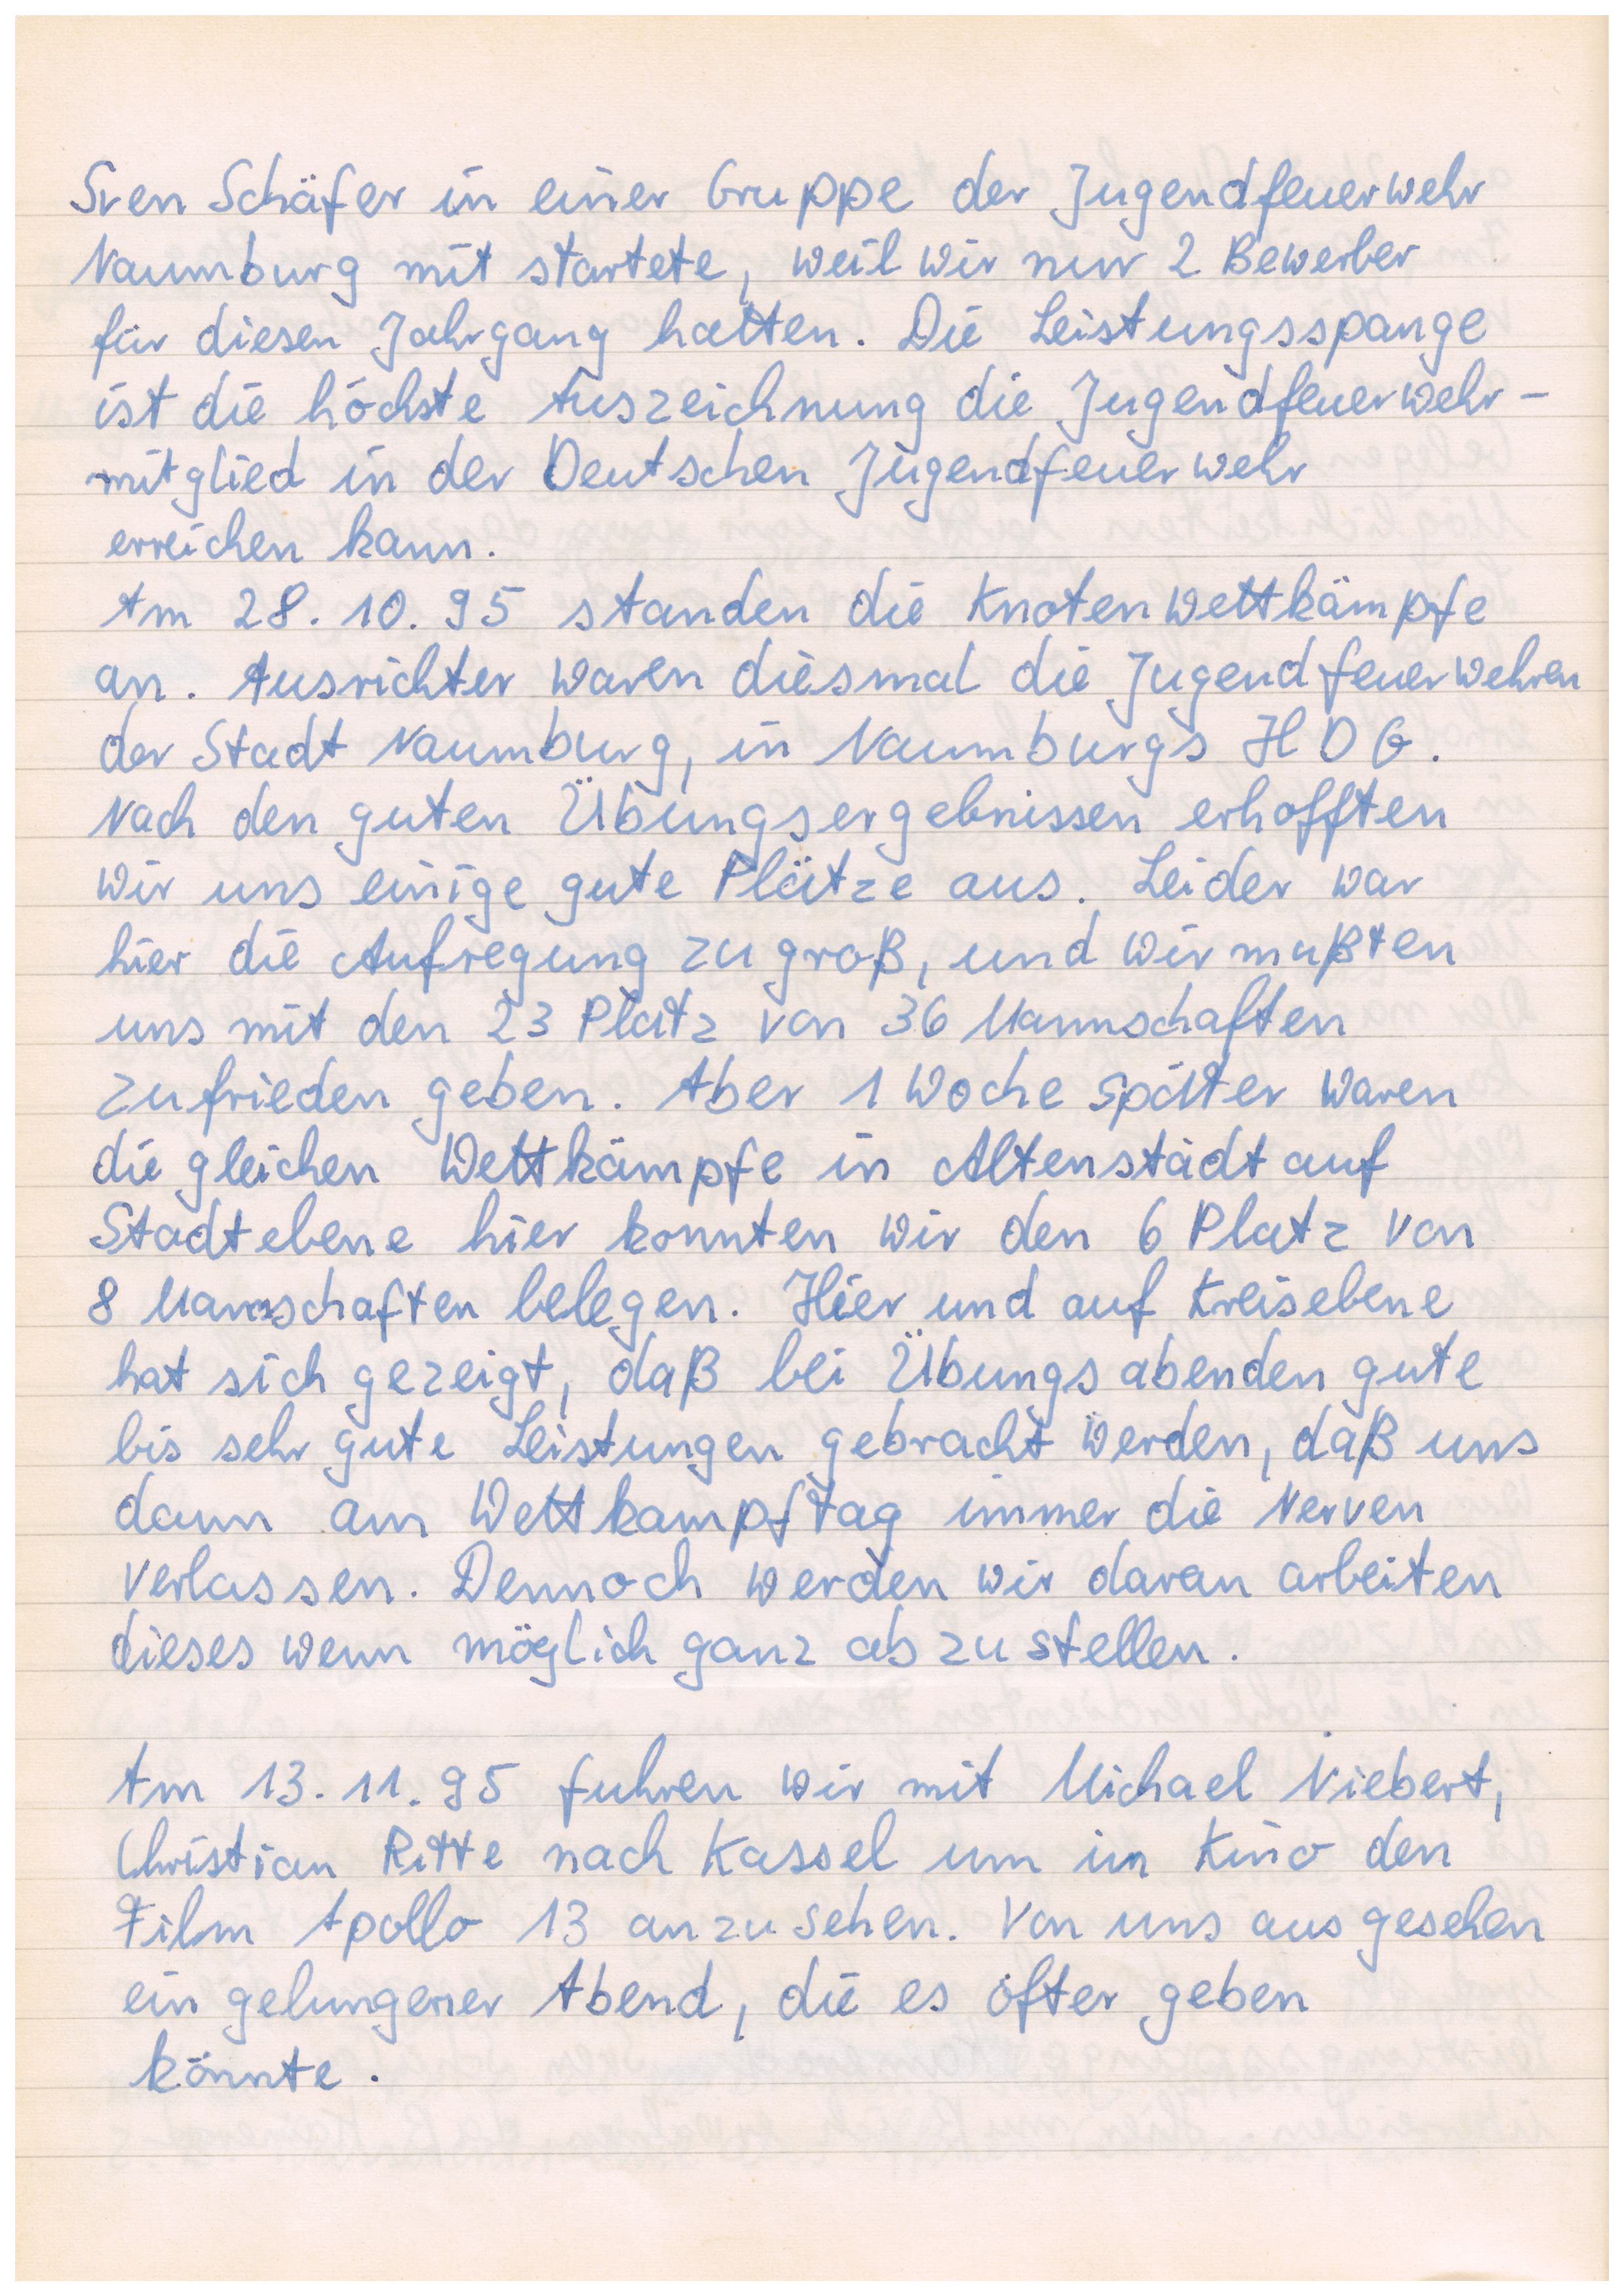 Sven Schäfer in einer Gruppe der Jugendfeuerwehr
Naumburg mit startete, weil wir nur 2 Bewerber
für diesen Jahrgang hatten. Die Leistungsspange
ist die höchste Auszeichnung die Jugendfeuerwehr-
mitglied in der Deutschen Jugendfeuerwehr
erreichen kann.
Am 28.10.95 standen die Knotenwettkämpfe
an. Ausrichter waren diesmal die Jugendfeuerwehren
der Stadt Naumburg, in Naumburgs HDG.
Nach den guten Übungsergebnissen erhofften
wir uns einige gute Plätze aus. Leider war
hier die Aufregung zu groß, und wir mußten
uns mit den 23 Platz von 36 Mannschaften
zufrieden geben. Aber 1 Woche später waren
die gleichen Wettkämpfe in Altenstädt auf
Stadtebene hier konnten wir den 6 Platz von
8 Mannschaften belegen. Hier und auf Kreisebene
hat sich gezeigt, daß bei Übungsabenden gute
bis sehr gute Leistungen gebracht werden, daß uns
dann am Wettkampftag immer die Nerven
verlassen. Dennoch werden wir daran arbeiten
dieses wenn möglich ganz abzustellen.
Am 13.11.95 fuhren wir mit Michael Niebert,
Christian Ritte nach Kassel um im Kino den
Film Apollo 13 anzusehen. Von uns aus gesehen
ein gelungener Abend, die es öfter geben
könnte.